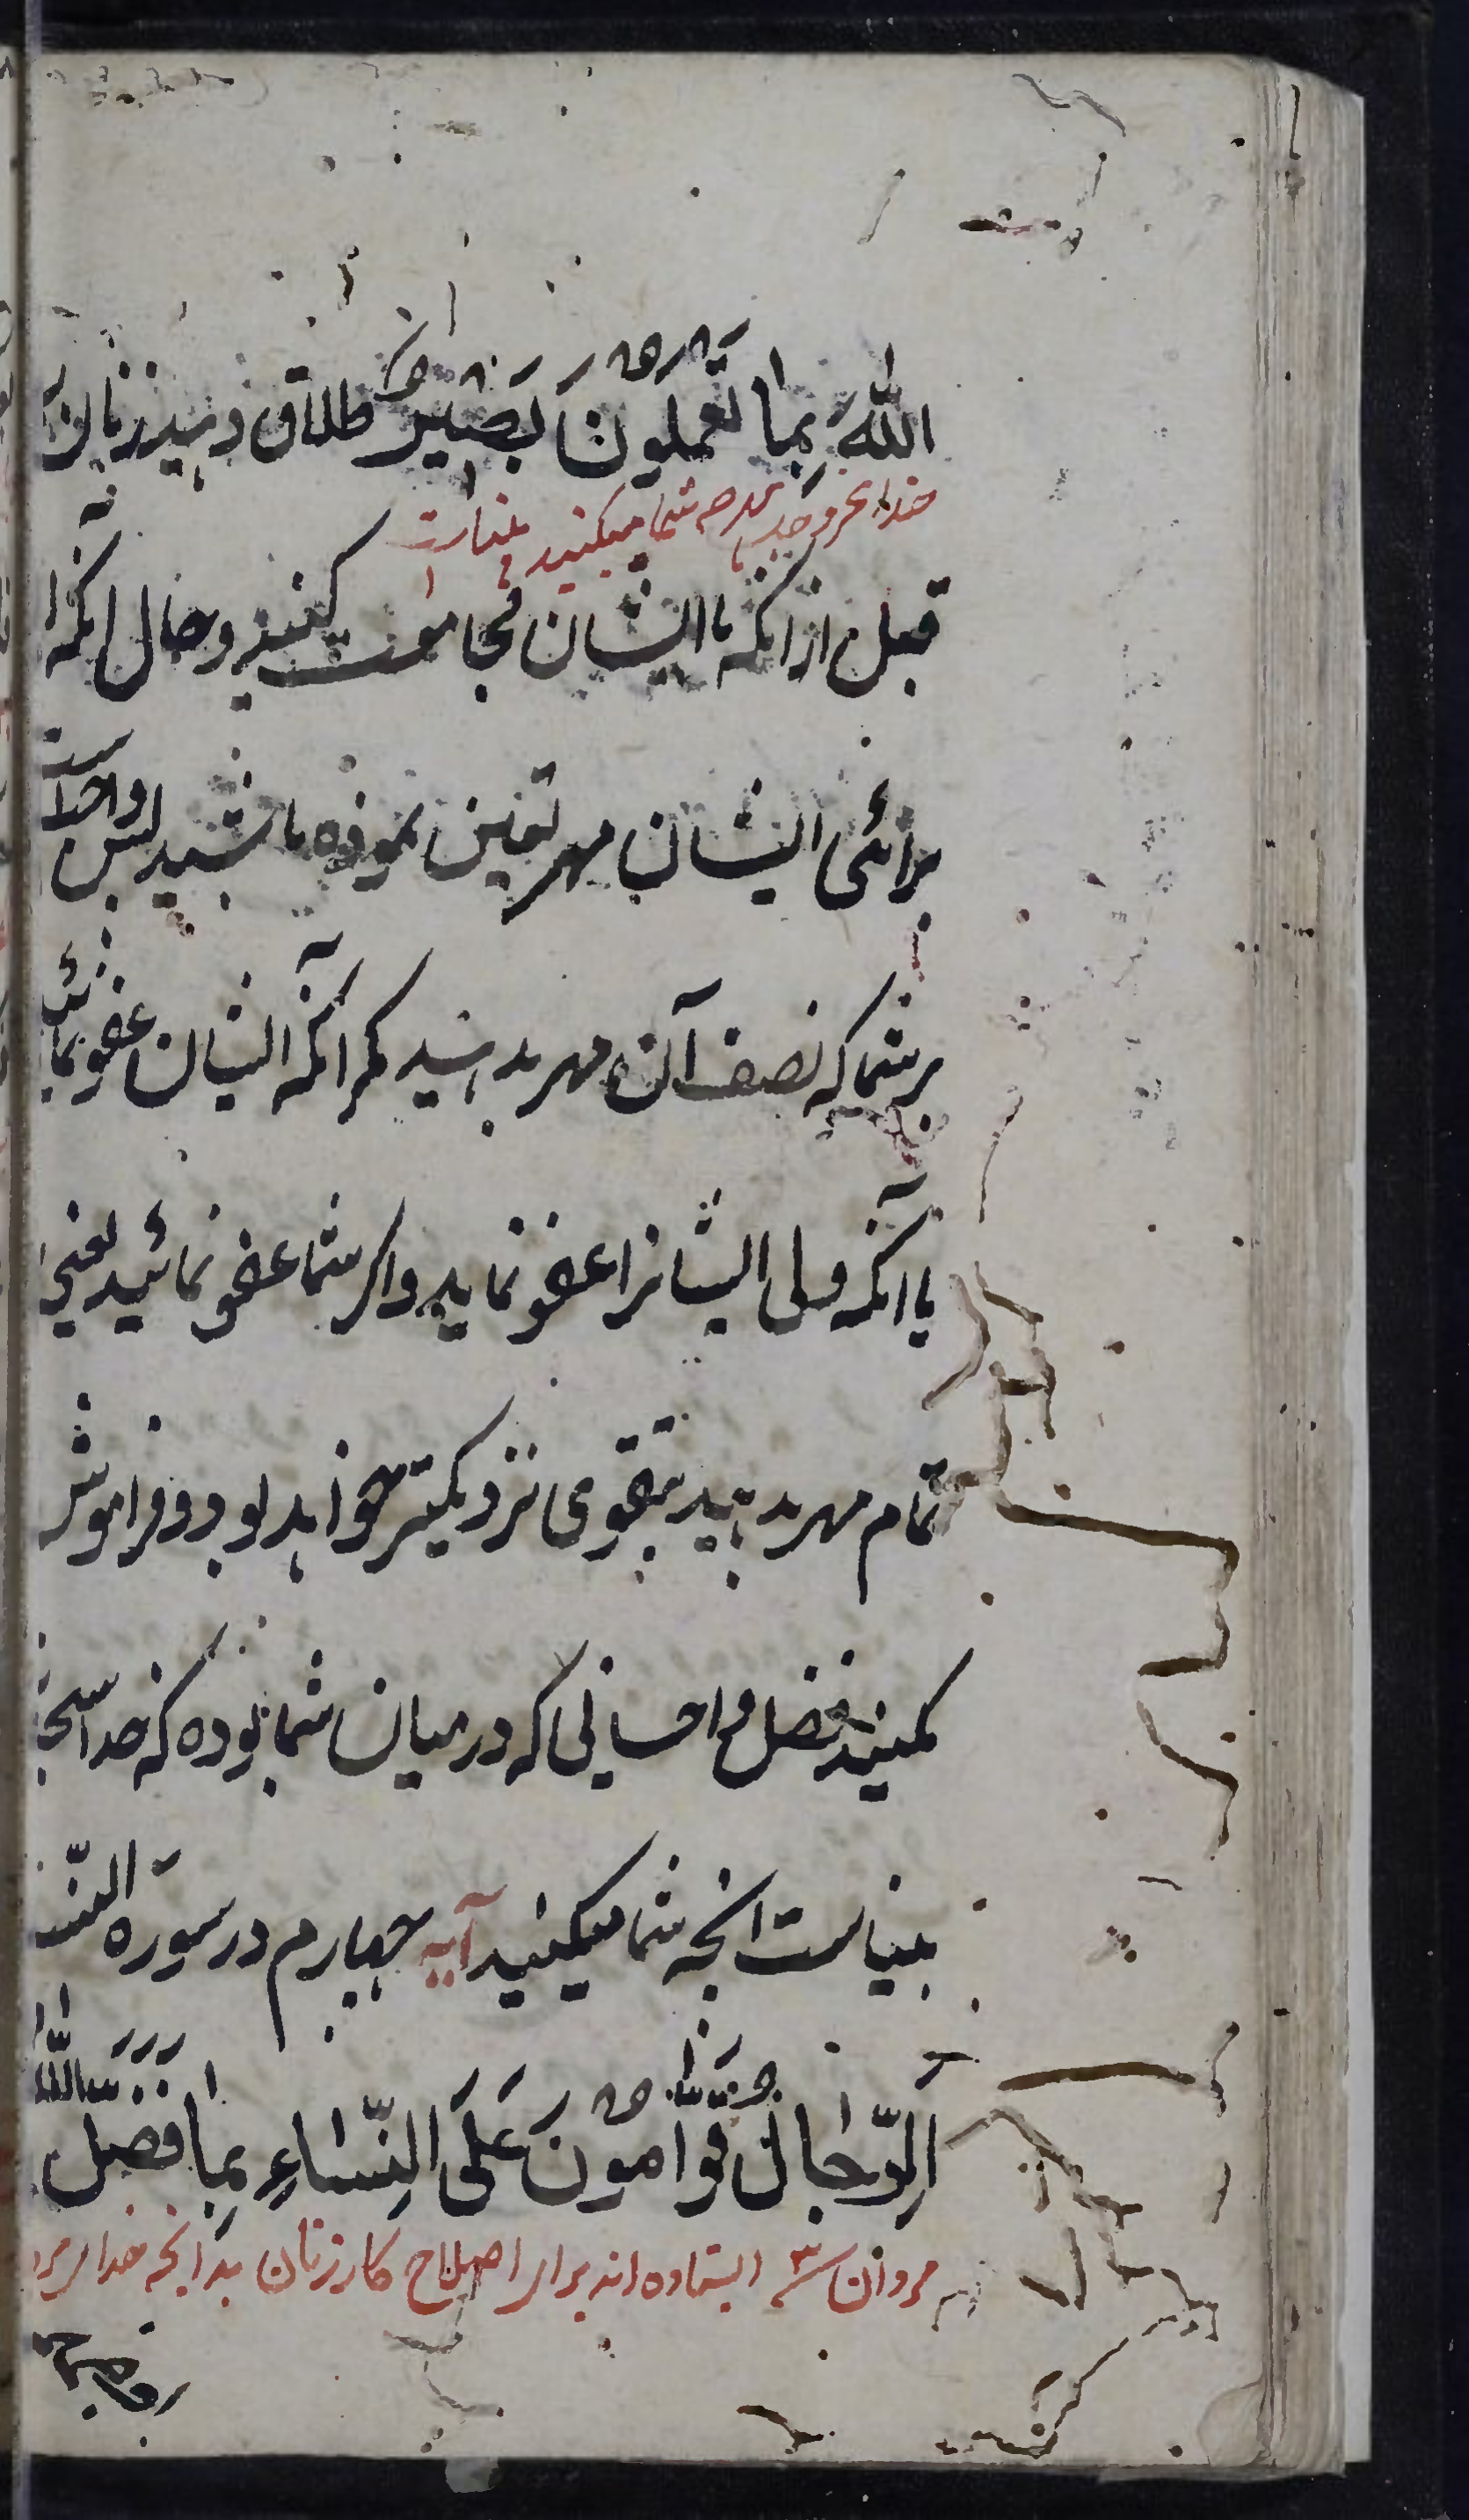 اللهَ بِما تَعمَلونَ بَصیرٌ اگر طلاق دهید زنان را
خدا عز و جل بهرچه شما میکنید بینا است
قبل از آنکه با ایشان مجامعت کنید و حال آنکه
برائی ایشان مهر تعین نموده باشید پس واجبست
بر شما که نصف آن مهر بدهید مگر آنکه ایشان عفو نمائند
یا آنکه ولی ایشانرا عفو نماید و اگر شما عفو نمائید یعنی
تمام مهر بدهید بتقوی نزدیکتر خواهد بود و فراموش
مکنید فضل و احسانی که در میان شما بوده که خدا
بینا است آنچه شما میکنید آیه چهارم در سوره النسا
اَلرِّجالُ قَوّامونَ عَلَی النِّساءِ بِما فَضَّلَ اللهُ
مردان ایستاده اند برای اصلاح کار زنان بدانچه خدا